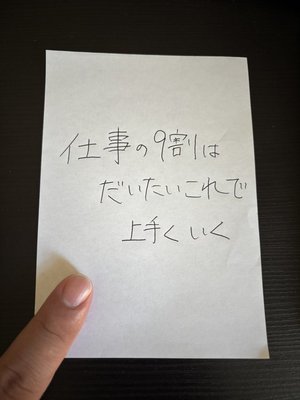 仕事の9割は
だいたいこれで
上手くいく